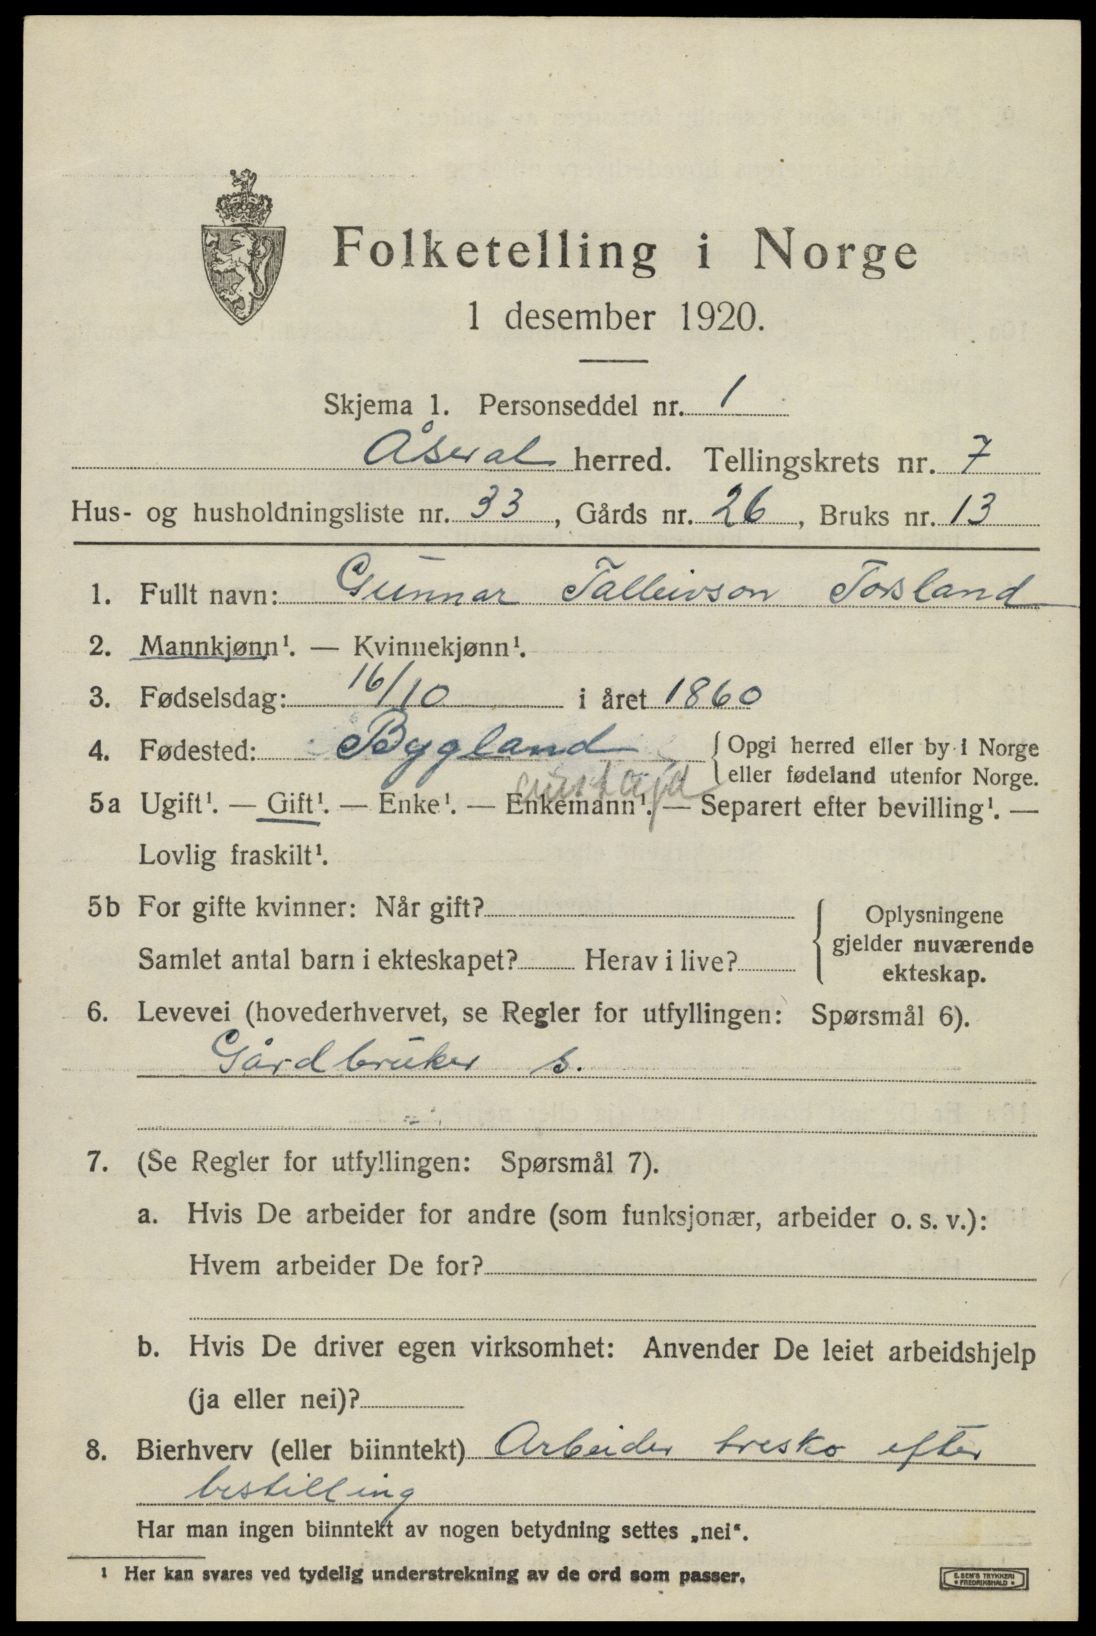 Folketelling i Norge
1 desember 1920.
Skjema 1. Personseddel nr. 1
Åseral herred. Tellingskrets nr. 7
Hus- og husholdningsliste nr. 33, Gårds nr. 26, Bruks nr. 13
1. Fullt navn: Gunnar Talleivson Torsland
2. Mannkjønn¹. — Kvinnekjønn¹.
3. Fødselsdag: 16/10 i året 1860
4. Fødested: Bygland { Opgi herred eller by i Norge
eller fødeland utenfor Norge.
aust agd
5a Ugift¹. — Gift¹. — Enke¹. — Enkemann¹. — Separert efter bevilling¹. —
Lovlig fraskilt¹.
5b For gifte kvinner: Når gift?
Samlet antal barn i ekteskapet? Herav i live?
Oplysningene
gjelder nuværende
ekteskap.
6. Levevei (hovederhvervet, se Regler for utfyllingen: Spørsmål 6).
Gårdbruker s.
7. (Se Regler for utfyllingen: Spørsmål 7).
a. Hvis De arbeider for andre (som funksjonær, arbeider o. s. v.):
Hvem arbeider De for?
b. Hvis De driver egen virksomhet: Anvender De leiet arbeidshjelp
(ja eller nei)?
8. Bierhverv (eller biinntekt) Arbeider tresko efter
bestilling
Har man ingen biinntekt av nogen betydning settes „nei“.
¹ Her kan svares ved tydelig understrekning av de ord som passer.
E. SEM'S TRYKKERI
• FREDRIKSHALD •